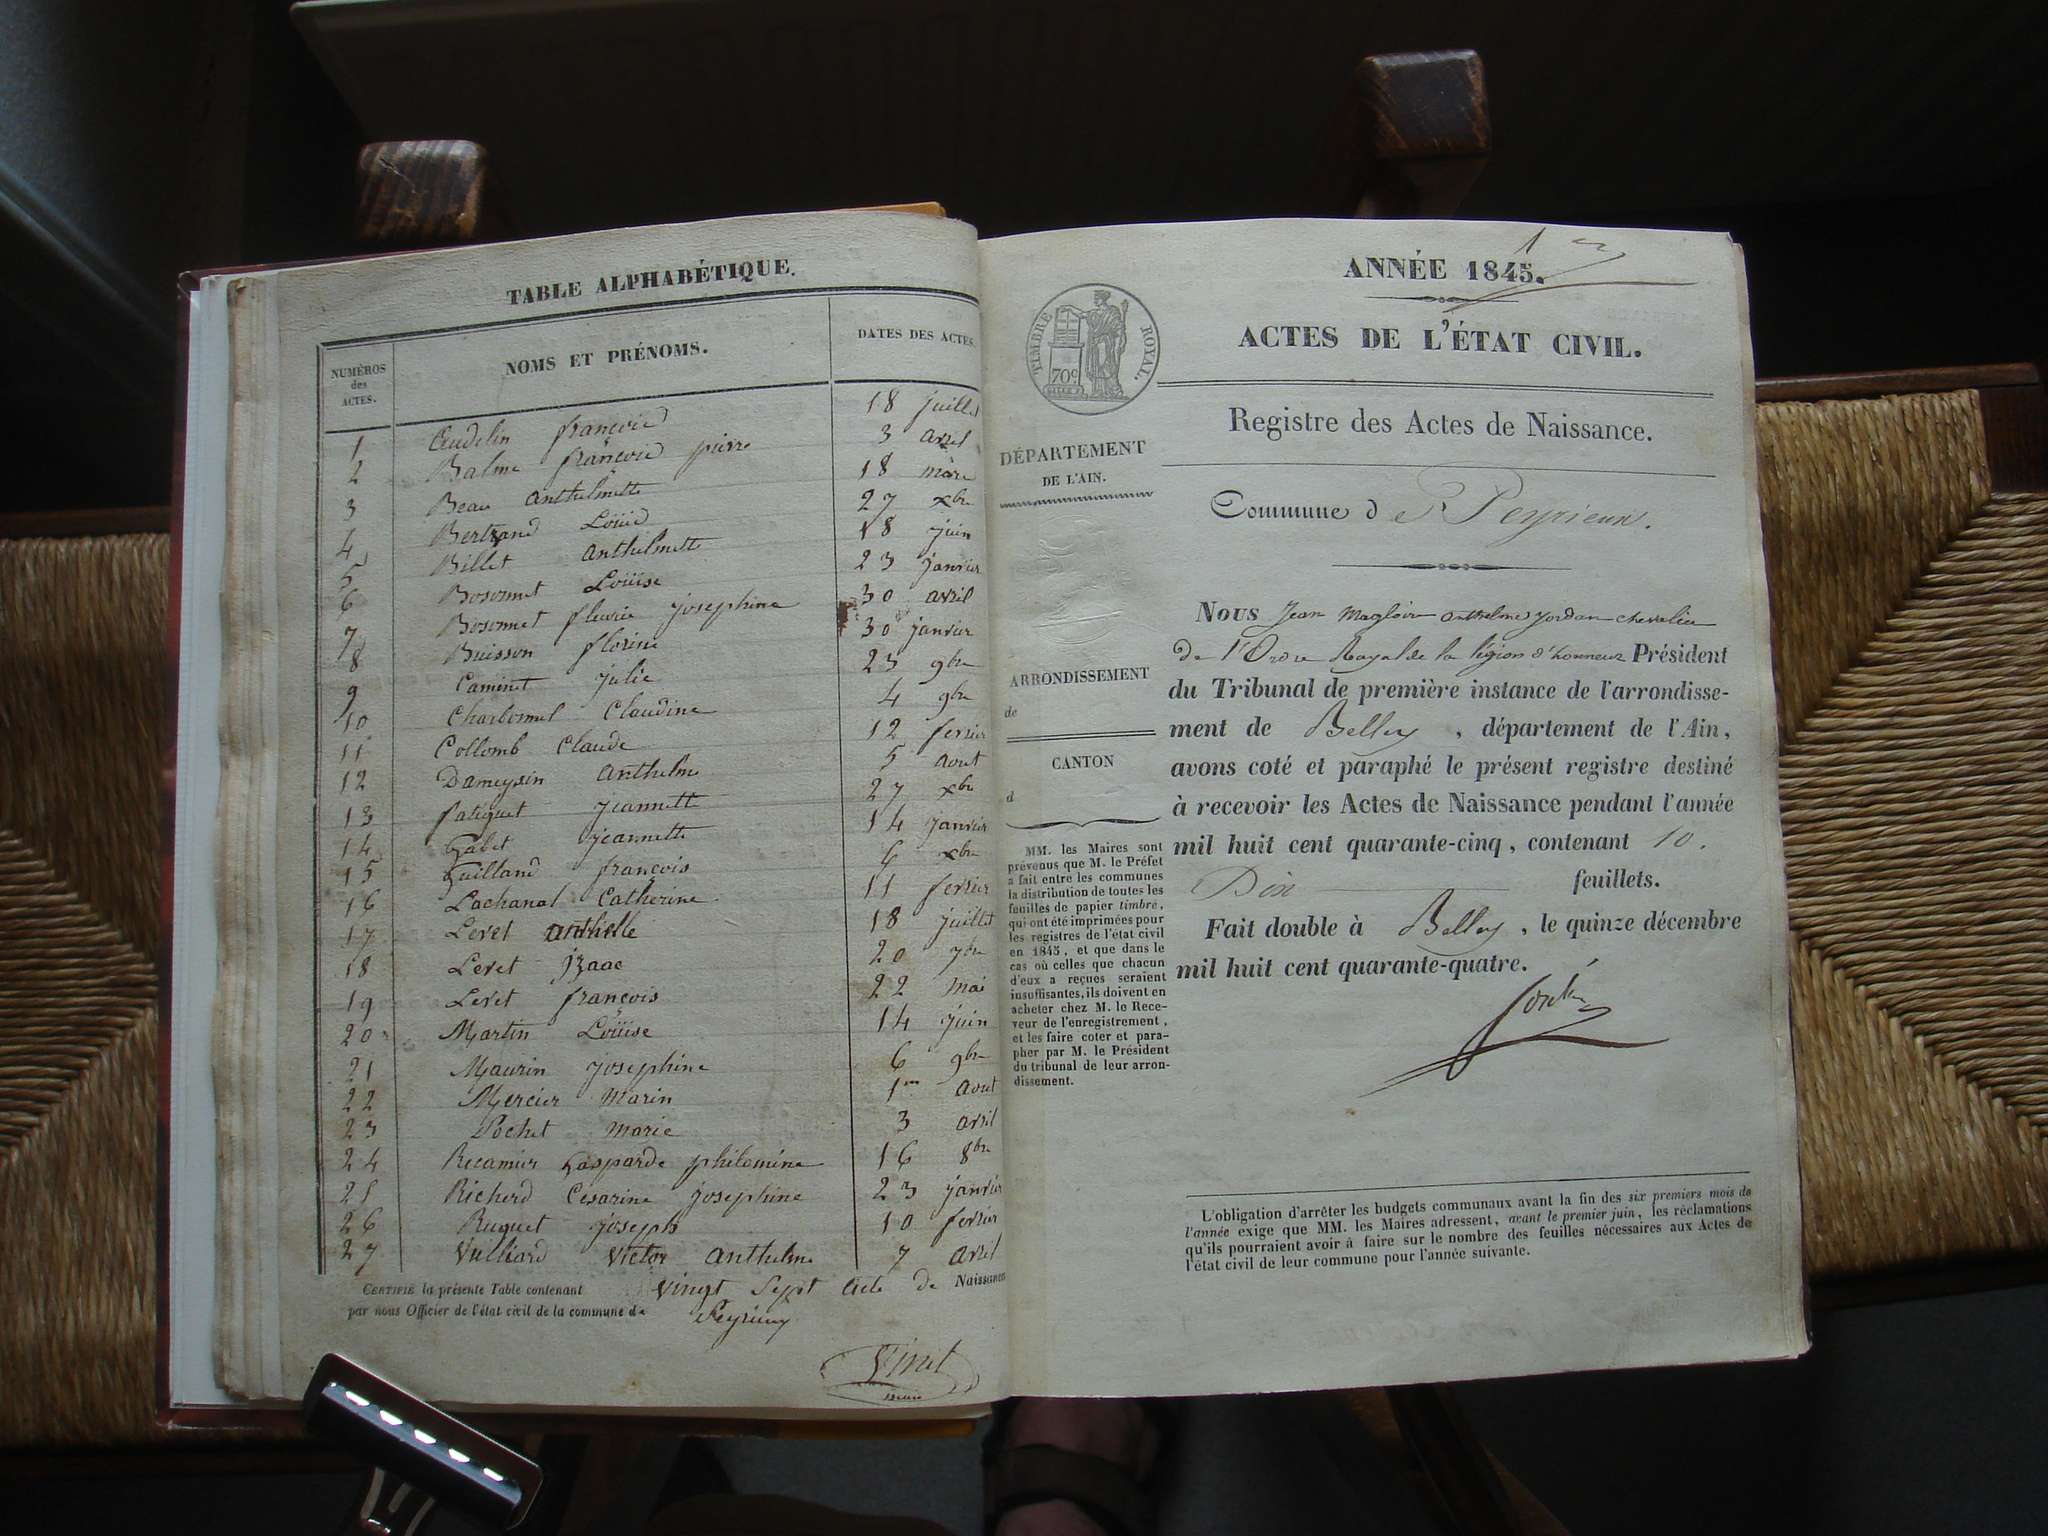 TABLE ALPHABÉTIQUE.
NUMÉROS des ACTES. NOMS ET PRÉNOMS. DATES DES ACTES.
1 Audelin françois 18 juillet
2 Balme françois pierre 3 avril
3 Beau Anthelmette 18 mars
4 Bertrand Loüis 27 xbre
5 Billet Anthelmette 18 juin
6 Bosonnet Loüise 23 janvier
7 Bosonnet fleurie josephine 30 avril
8 Buisson florine 30 janvier
9 Caminet julie 23 9bre
10 Charbonnel Claudine 4 9bre
11 Collomb Claude 12 fevrier
12 Dameysin Anthelme 5 aout
13 jeannette 27 xbre
14 Gabet jeannette 14 janvier
15 Guilland françois 6 xbre
16 Lachanal Catherine 11 fevrier
17 Levet 18 juillet
18 Levet jzaac 20 7bre
19 Levet françois 22 mai
20 Martin Loüise 14 juin
21 Maurin josephine 6 9bre
22 Mercier Marin 1er aout
23 Pochet marie 3 avril
24 Recamier Gasparde philomine 16 8bre
25 Richerd Césarine josephine 23 janvier
26 Ruguet joseph 10 fevrier
27 Vulliard Victor Anthelme 7 avril
CERTIFIÉ la présente Table contenant vingt sept acte de Naissances
par nous Officier de l'état civil de la commune de Peyrieux
Vinet
maire
1er
ANNÉE 1845.
ACTES DE L'ÉTAT CIVIL.
TIMBRE ROYAL.
70c
Registre des Actes de Naissance.
DÉPARTEMENT
DE L'AIN.
Commune de Peyrieux.
ARRONDISSEMENT
de
CANTON
d
MM. les Maires sont
prévenus que M. le Préfet
a fait entre les communes
la distribution de toutes les
feuilles de papier timbré,
qui ont été imprimées pour
les registres de l'état civil
en 1845, et que dans le
cas où celles que chacun
d'eux a reçues seraient
insuffisantes, ils doivent en
acheter chez M. le Rece-
veur de l'enregistrement,
et les faire coter et para-
pher par M. le Président
du tribunal de leur arron-
dissement.
NOUS Jean Magloire Anthelme Jordan chevalier
de l'Ordre Royal de la légion d'honneur Président
du Tribunal de première instance de l'arrondisse-
ment de Belley, département de l'Ain,
avons coté et paraphé le présent registre destiné
à recevoir les Actes de Naissance pendant l'année
mil huit cent quarante-cinq, contenant 10.
Dix feuillets.
Fait double à Belley, le quinze décembre
mil huit cent quarante-quatre.
L'obligation d'arrêter les budgets communaux avant la fin des six premiers mois de
l'année exige que MM. les Maires adressent, avant le premier juin, les réclamations
qu'ils pourraient avoir à faire sur le nombre des feuilles nécessaires aux Actes de
l'état civil de leur commune pour l'année suivante.